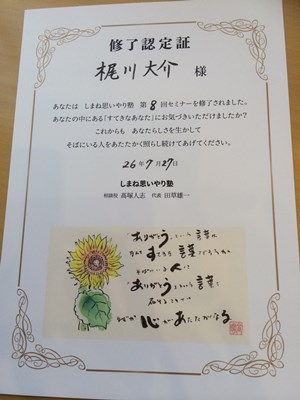 修了認定証
梶川大介 様
あなたは しまね思いやり塾 第 8 回セミナーを修了されました。
あなたの中にある「すてきなあなた」にお気づきいただけましたか?
これからも あなたらしさを生かして
そばにいる人をあたたかく照らし続けてあげてください。
26年7月27日
しまね思いやり塾
相談役 高塚人志 代表 田草雄一
"ありがとう"という言葉は
なんて すてきな 言葉だろうか
そばにいる人に
"ありがとう"という言葉を
心が あたたかくなる